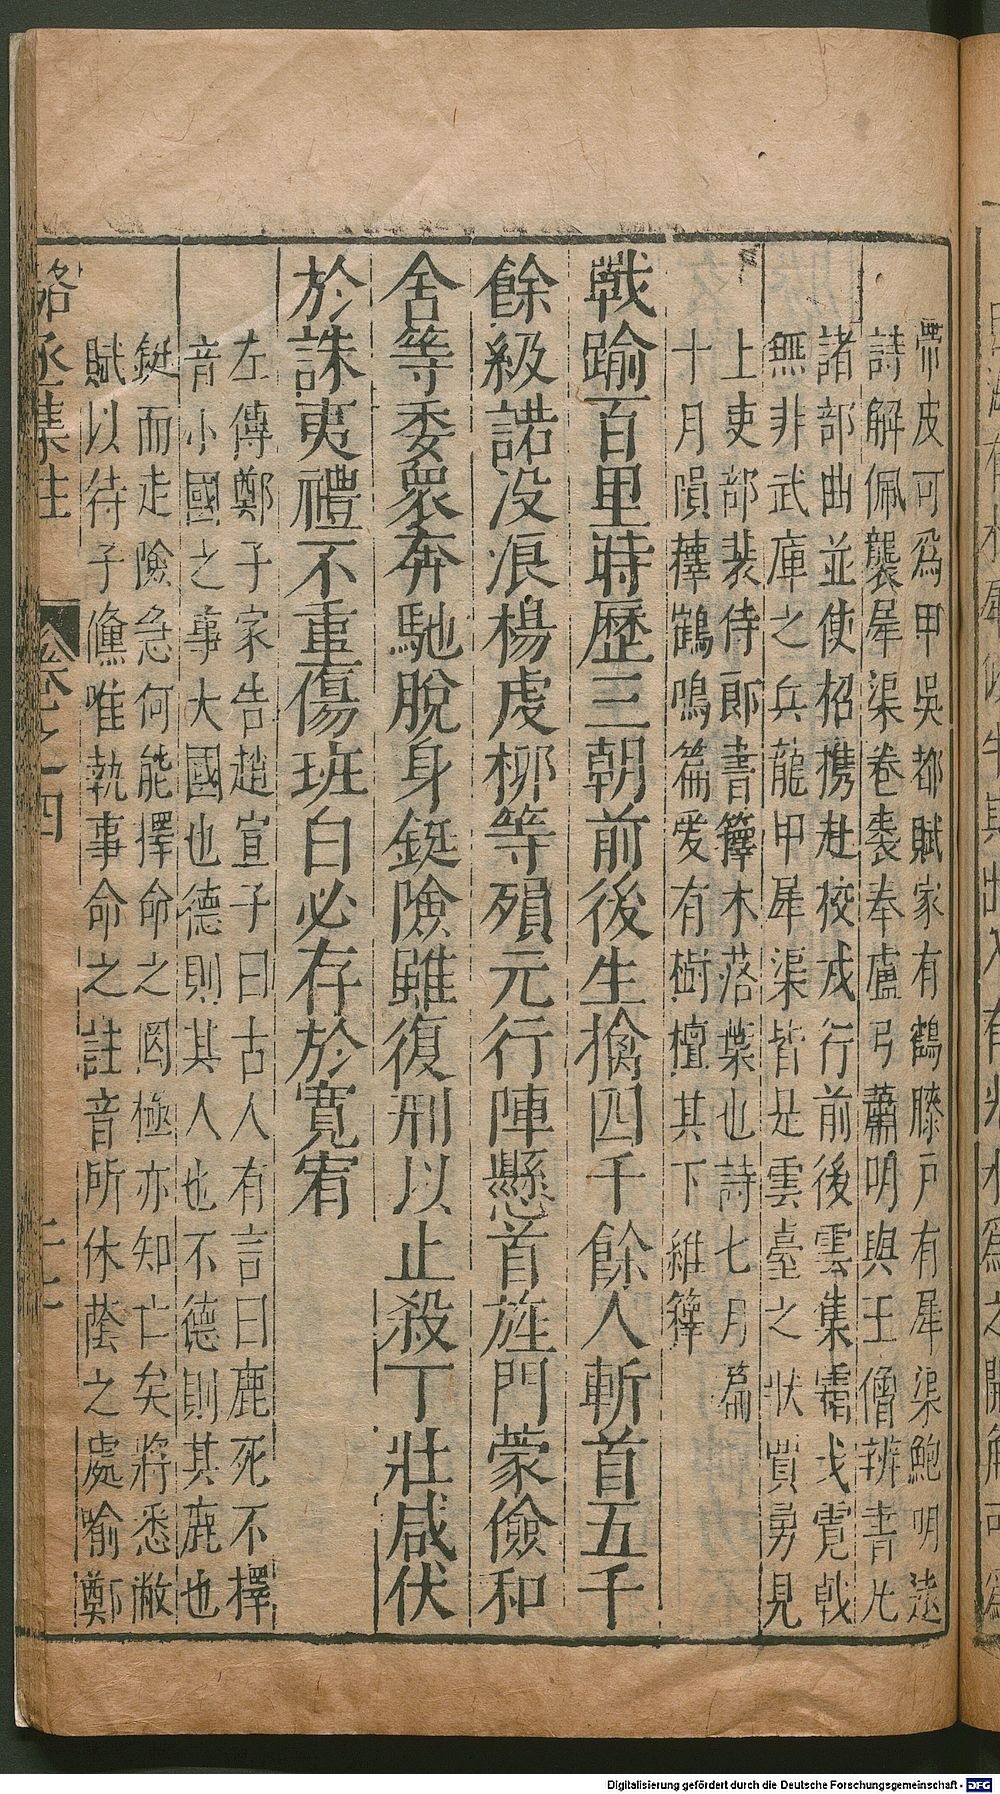 帶皮可爲甲吳都賦家有鶴膝戸有犀渠鮑明遠
詩解佩襲犀渠卷袠奉盧弓蕭明與王僧辨書凡
諸部曲並使招携赴校戎行前後雲集霜戈霓戟
無非武庫之兵龍甲犀渠皆是雲臺之狀賞勇見
上吏部裴侍郎書籜木落葉也詩七月篇
十月隕蘀鶴鳴篇爰有樹檀其下維籜
戰踰百里時歷三朝前後生擒四千餘人斬首五千
餘級諾没浪楊虔栁等殞元行陣懸首旌門蒙儉和
舍等委衆奔馳脫身鋌險雖復刑以止殺丁壯咸伏
於誅夷禮不重傷班白必存於寛宥
左傳鄭子家告趙宣子曰古人有言曰鹿死不擇
音小國之事大國也德則其人也不德則其鹿也
鋌而走險急何能擇命之罔極亦知亡矣將悉敝
賦以待子儵唯執事命之註音所休蔭之處喻鄭
駱丞集註 卷之四
Digitalisierung gefördert durch die Deutsche Forschungsgemeinschaft - DFG